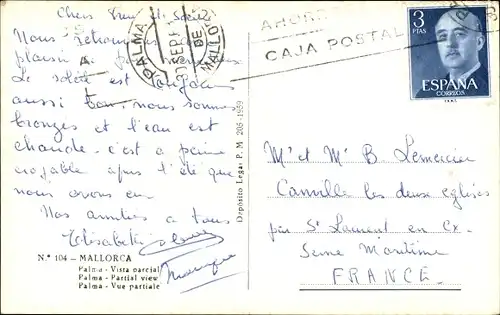 Chers
Nous retrouvons
plaisir
Le soleil est toujours
aussi bon, nous sommes
bronzés et l'eau est
chaude. c'est à peine
croyable après l'été que
nous avons eu
Nos amitiés à tous
Elisabeth
N.° 104 - MALLORCA
Palma - Vista parcial
Palma - Partial view
Palma - Vue partiale
Depósito Legal P. M. 206-1959
PALMA DE MALLO
SEP
CAJA POSTAL
3
PTAS
ESPAÑA
CORREOS
Mr et Me B Lemercier
Canville les deux eglises
par St Laurent en Cx
Seine Maritime
FRANCE